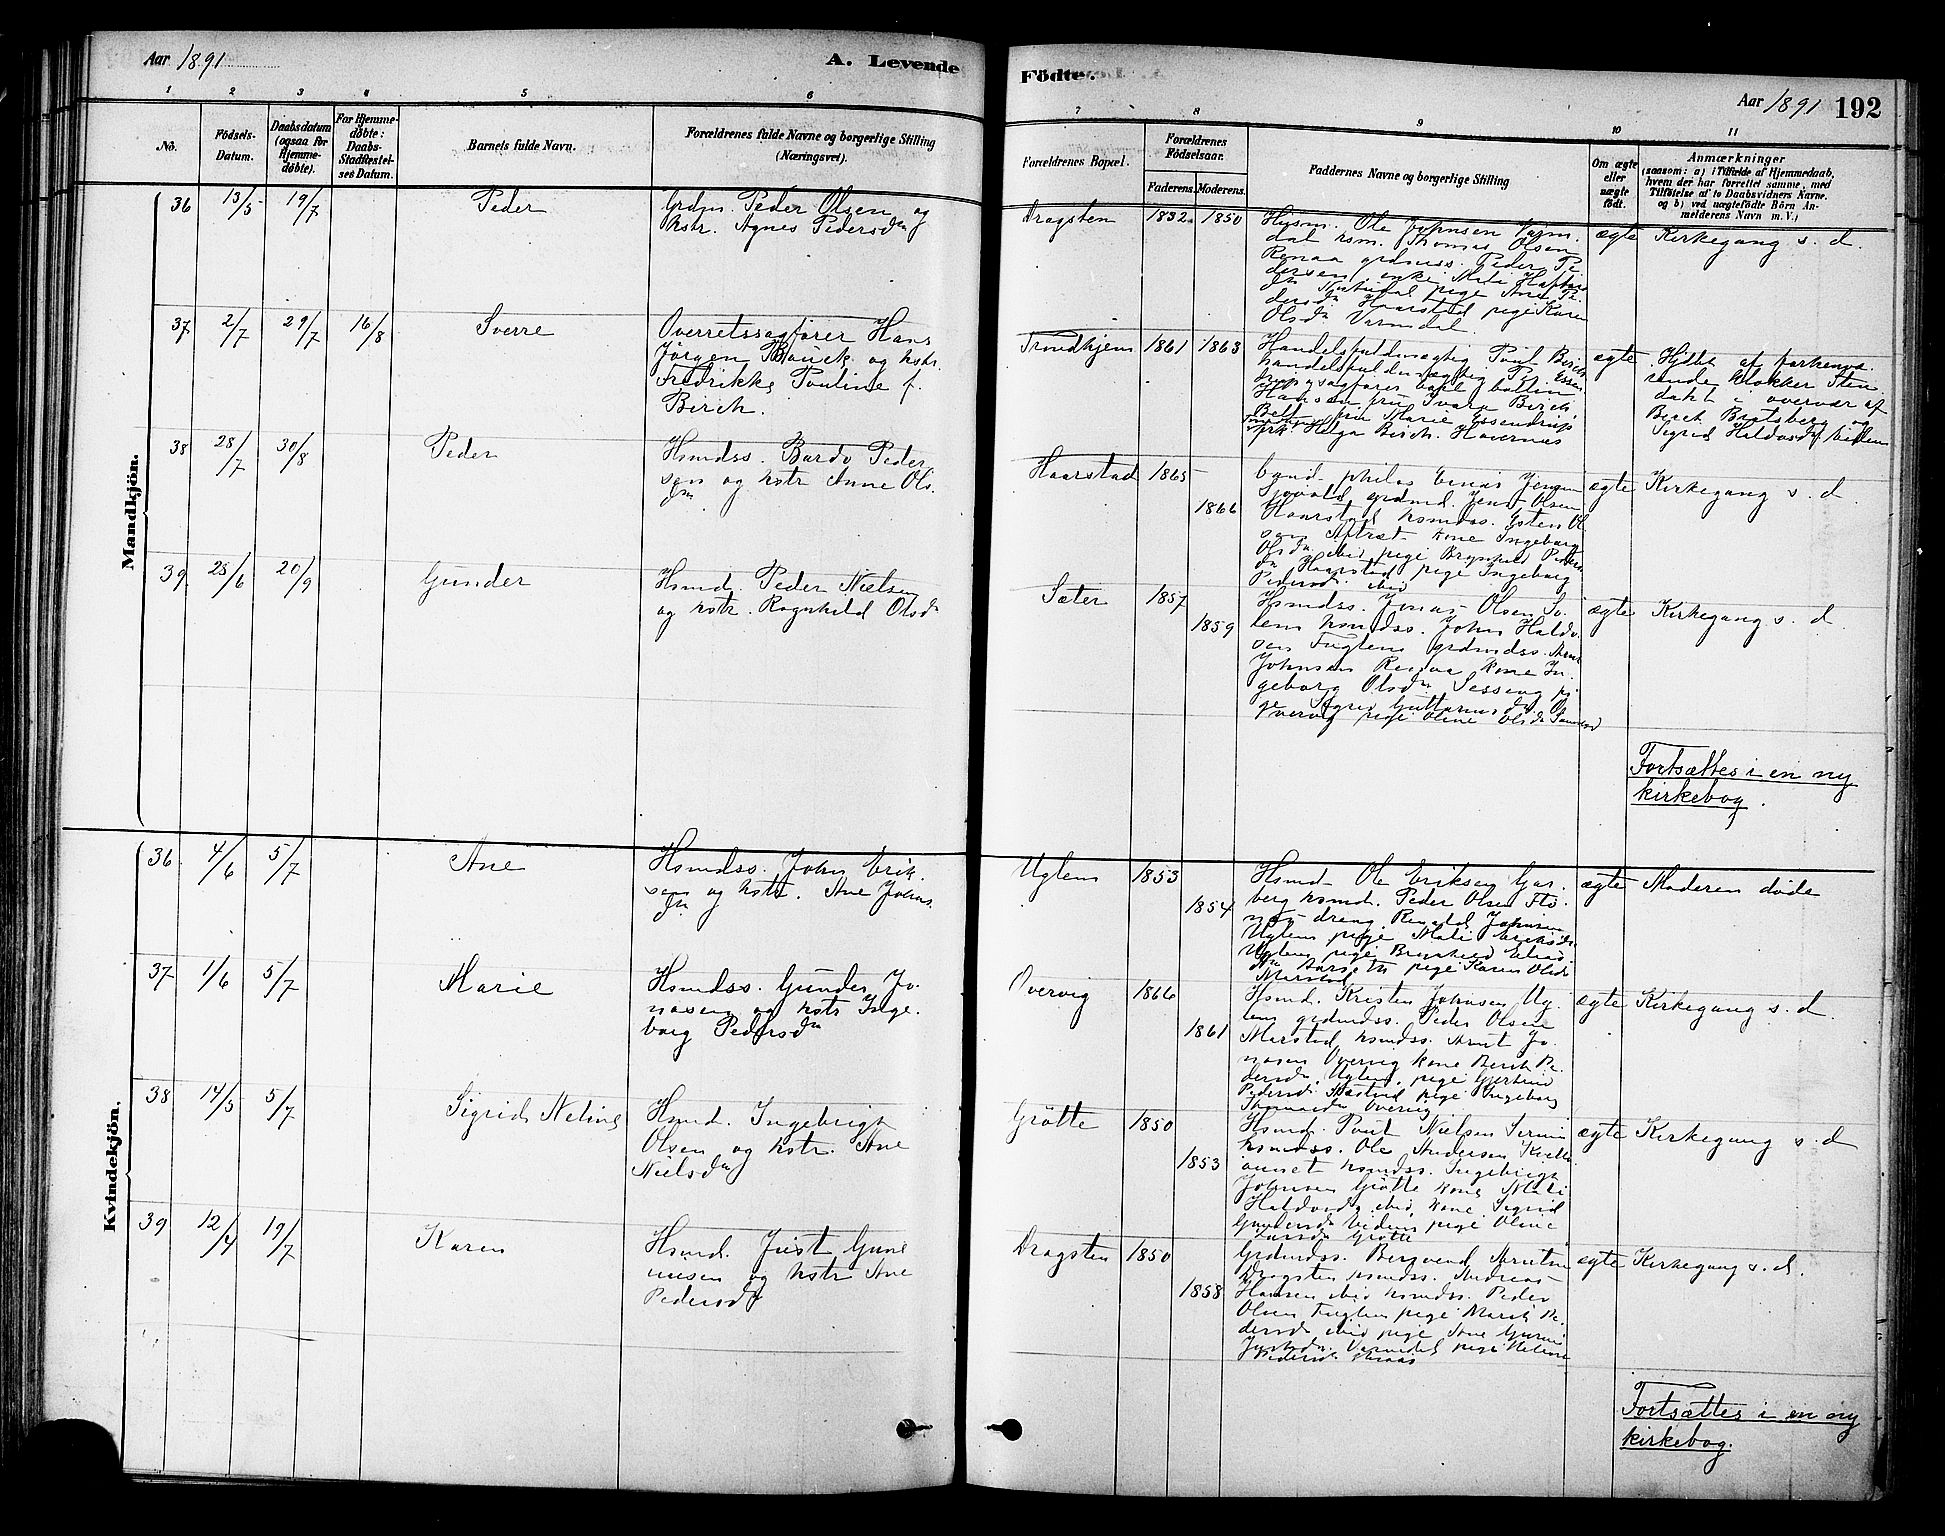 Aar 1891
A. Levende
Födte.
Aar 1891 192
1 2 3 4 5 6
7 8 9 10 11
No.
Födsels-
Datum.
Daabsdatum
(ogsaa for
Hjemme-
døbte).
For Hjemme-
døbte:
Daabs-
Stadfæstel-
ses Datum.
Barnets fulde Navn.
Forældrenes fulde Navne og borgerlige Stilling
(Næringsvei).
Forældrenes Bopæl.
Forældrenes
Födselsaar.
Faderens. Moderens.
Faddernes Navne og borgerlige Stilling
Om ægte
eller
uægte
födt.
Anmærkninger
(saasom: a) i Tilfælde af Hjemmedaab,
hvem der har forrettet samme, med
Tilföielse af to Daabsvidners Navne.
og b) ved uægtefödte Börn An-
melderens Navn m. V.)
Mandkjön.
36 13/5 19/7 Peder
Grdm. Peder Olsen og
kstr. Agnes Pedersdn
Dragsten 1832 1850
Husm. Ole Johnsen Varm-
dal hsm. Thomas Olsen
Renaa grdmss. Peder Pe-
dersen enke Mali
pige Ane Pe-
dersdn Haarstad pige Karen
Olsdn Varmdal
ægte Kirkegang s. d.
37 2/7 29/7 16/8 Sverre
Overretssagfører Hans
Jørgen Bauck og kstr.
Fredrikke Pauline f.
Birch.
Trondhjem 1861 1863
Handelsfuldmægtig Paul Birch
handelsfuldmægtig
Hansen fru Birch
fru Marie Essendrup
frk. Helga Birch.
ægte Hjdbt. af
klokker Sten
i overvær af
Berit Bratsberg og
Sigrid
38 28/7 30/8 Peder
Hsmdss. Bardo Peder-
sen og kstr Anne Ols-
dn
Haarstad 1865
1866
Cand. philos Jensen
grdmd. Jens Olsen
Haarstad hsmdss. Esten Ol-
sen Aftret kone Ingeborg
Olsdn ibid pige Brynhild Peders-
dn Haarstad pige Ingeborg
Pedersd. ibid
ægte Kirkegang s. d
39 28/6 20/9 Gunder
Hsmd. Peder Nielsen
og kstr. Ragnhild Olsdn
Sæter 1857
1859
Hsmdss. Jonas Olsen So-
lem hsmdss. John Haldo-
sen Fuglem grdmdss. Arnt
Johnsen Renaa kone In-
geborg Olsdn Sesseng pi-
ge
Overvig pige Oline Olsdn
ægte Kirkegang s. d.
Fortsættes i en ny
kirkebog.
Kvindekjön.
36 4/6 5/7 Ane
Hsmdss. John Erik-
sen og kstr. Ane Johns-
dn
Uglem 1853
1854
Hsmd Ole Eriksen Gar-
berg hsmd. Peder Olsen Flo-
naes dreng Johnsen
Uglem pige Mali Eriksdn
Uglem pige
pige Karen Olsdn
Marstad
ægte Moderen døde
37 1/6 5/7 Marie
Hsmdss. Gunder Jo-
nasen og kstr Inge-
borg Pedersdn
Overvig 1866
1861
Hsmd. Kristen Johnsen Ug-
lem grdmdss. Peder Olsen
Marstad hsmdss. Arnt Jo-
nasen Overvig kone Berit Pe-
dersdn. Uglem. pige
Pedersd. pige Ingeborg
Overvig
ægte Kirkegang s. d.
38 14/5 5/7 Sigrid Neline
Hsmd. Ingebrigt
Olsen og kstr. Ane
Nielsdn
Grøtte 1850
1853
Hsmd. Paul Nielsen
hsmdss. Ole Andersen
hsmdss. Ingebrigt
Johnsen Grøtte kone Mali
Haldosd ibid. kone Sigrid
Gundersd. pige Oline
Larsdn Grøtte
ægte Kirkegang s. d
39 12/4 19/7 Karen
Hsmd. Just Gun-
nesen og kstr Ane
Pedersdn
Dragsten 1850
1858
Grdmdss. Bergsvend Arntsen
Dragsten hsmdss. Andreas
Hansen ibid hsmdss. Peder
Olsen Fuglem pige Marit Pe-
dersd ibid pige Ane
Justsdn Varmdal pige
Pedersdn
ægte Kirkegang s. d.
Fortsættes i en ny
kirkebog.